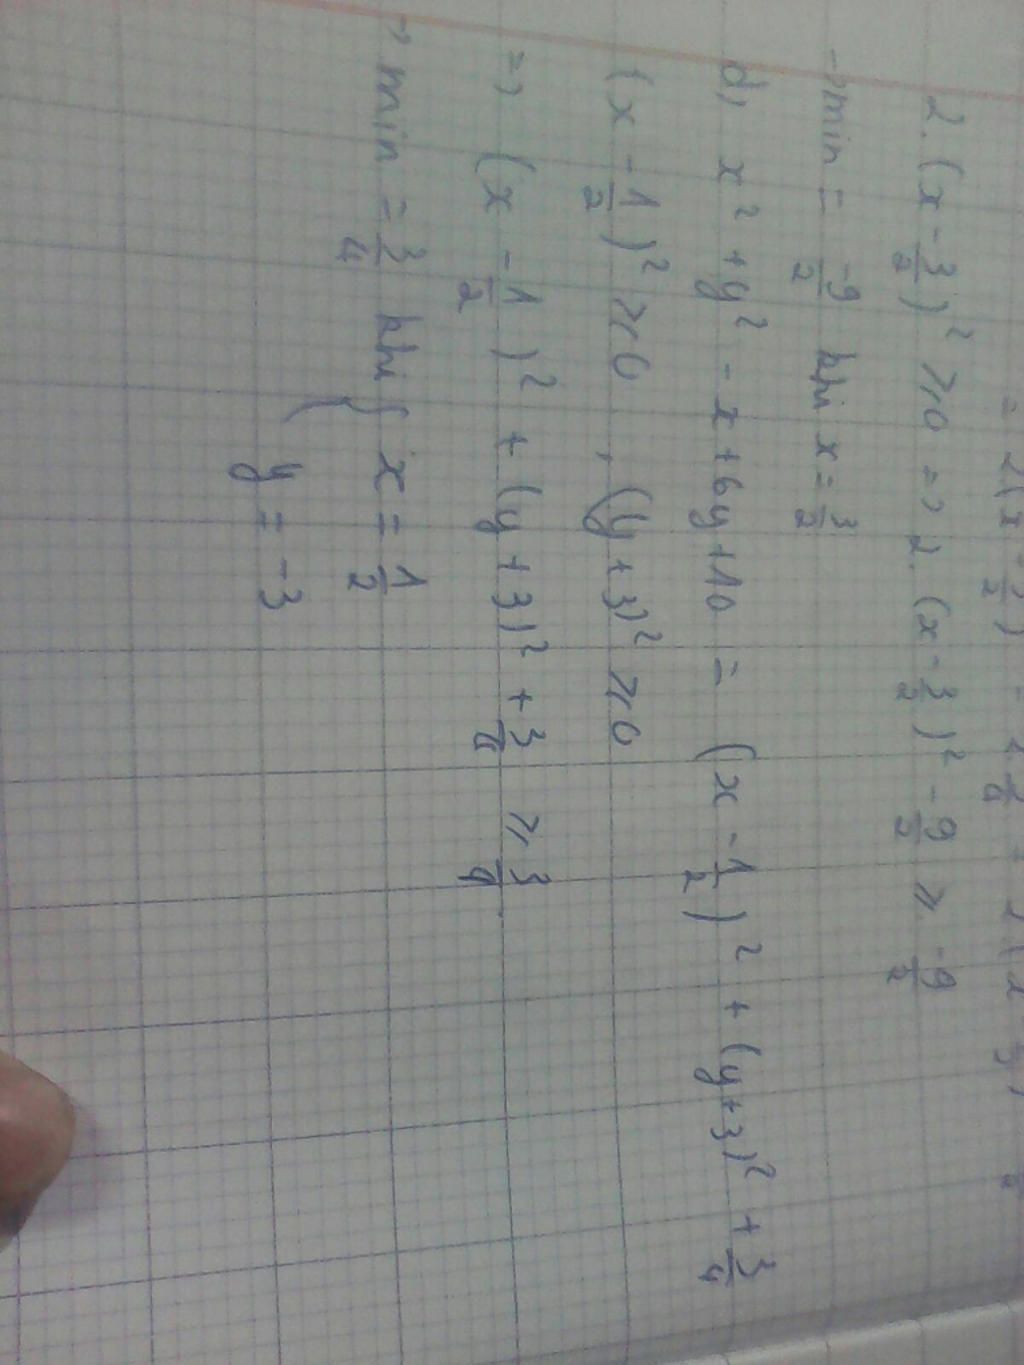 2.(x - 3/2)² ⩾ 0 => 2.(x - 3/2)² - 9/2 ⩾ -9/2
-> min = -9/2 khi x = 3/2
d, x² + y² - x + 6y + 10 = (x - 1/2)² + (y + 3)² + 3/4
(x - 1/2)² ⩾ 0, (y + 3)² ⩾ 0
=> (x - 1/2)² + (y + 3)² + 3/4 ⩾ 3/4
-> min = 3/4 khi { x = 1/2
y = -3